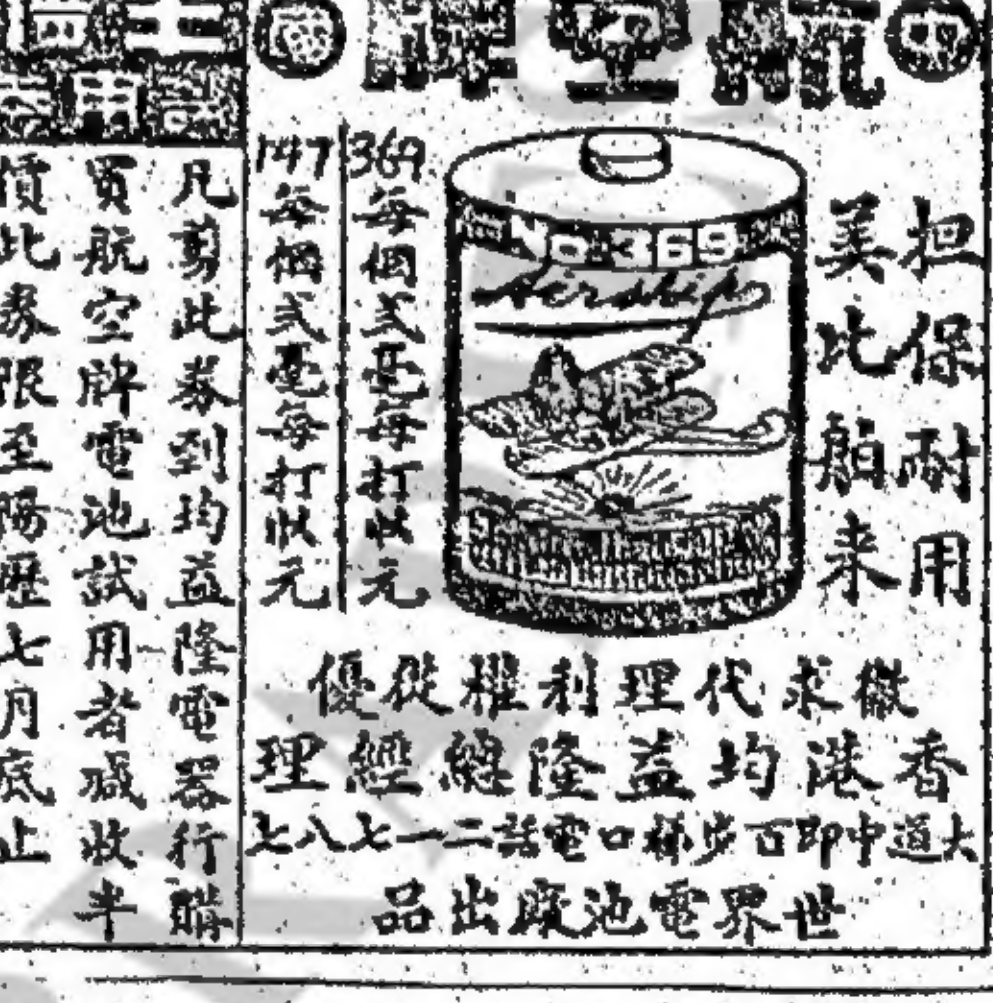 中
航空牌
國
担保耐用
美比舶来
No. 369
Airship
369每個弍毫每打弍元
147每個弍毫每打弍元
徵求代理利權從優
香港均益隆總經理
大道中即百步梯口電話二一七八七
世界電池廠出品
試用
凡剪此券到均益隆電器行購
買航空牌電池試用者減收半
價此券限至陽歷七月底止